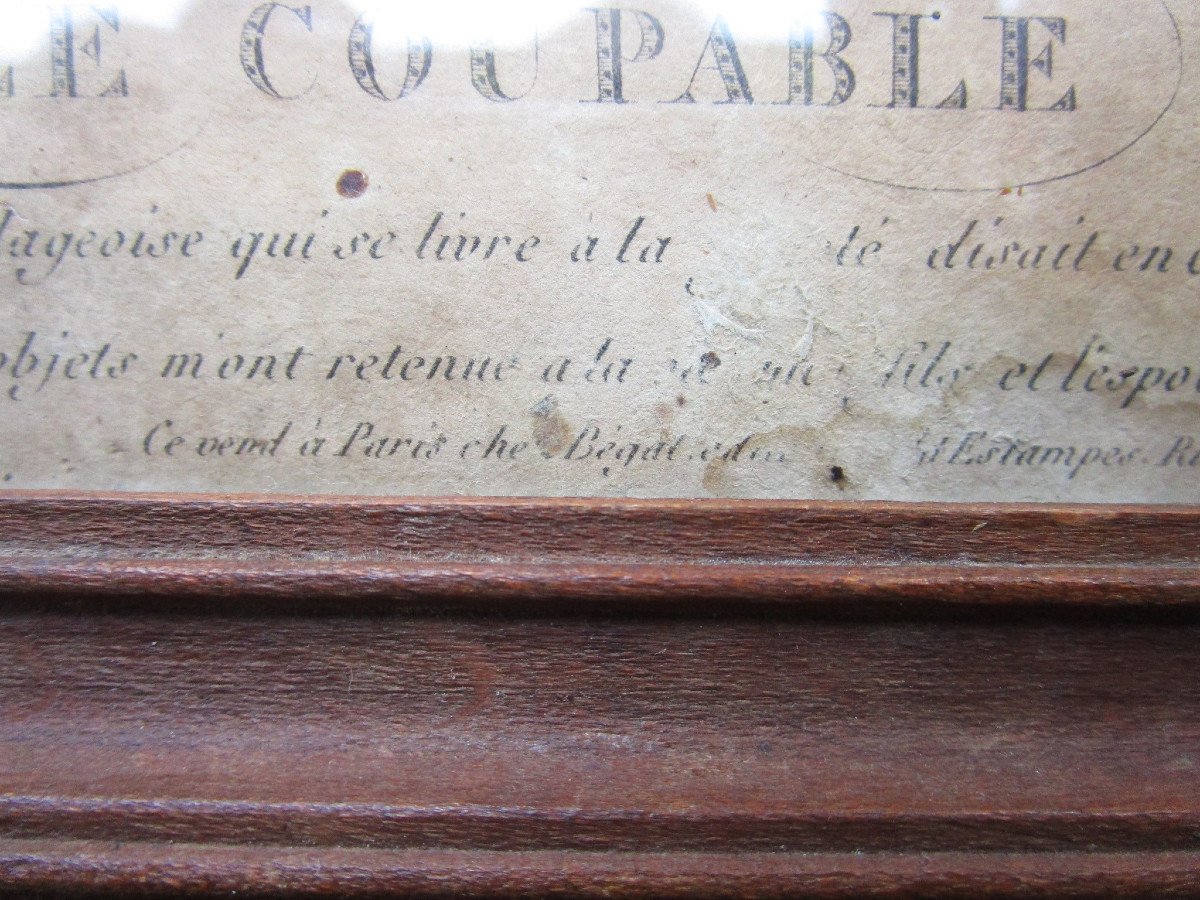 LE COUPABLE
lageoise qui se livre à la disait en
objets m'ont retenue a la fils et l'espo
Ce vend à Paris che Bégat d'Estampes. R